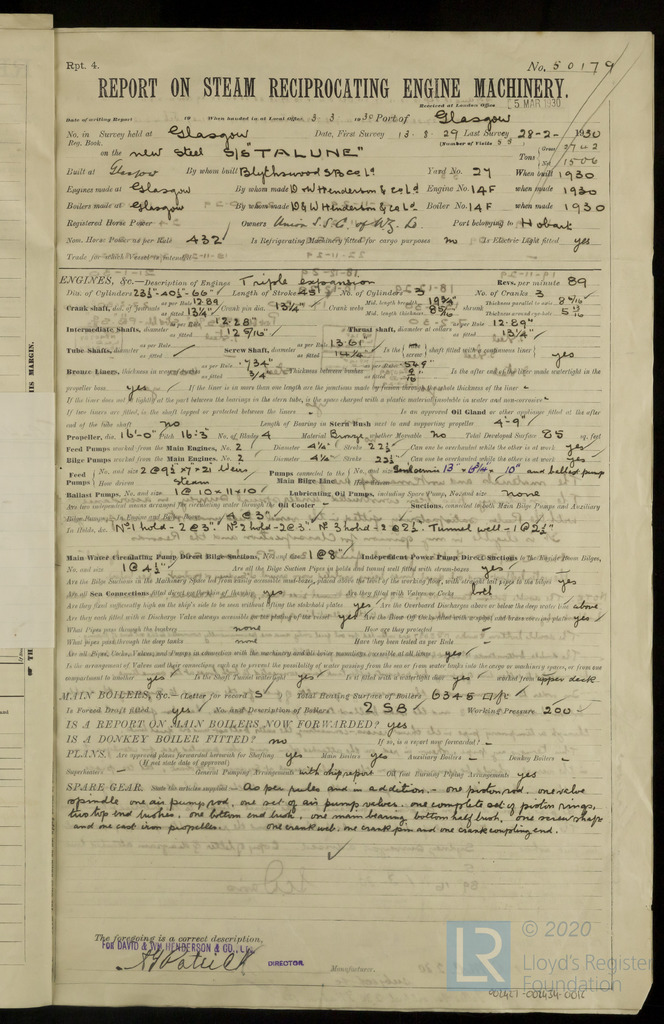 Rpt. 4.
No. 50179
REPORT ON STEAM RECIPROCATING ENGINE MACHINERY.
Received at London Office 5 MAR 1930
Date of writing Report 19 When handed in at Local Office 3 3 1930 Port of Glasgow
No. in Survey held at Glasgow Date, First Survey 13-8-29 Last Survey 28-2-1930
Reg. Book. (Number of Visits 55)
on the new Steel S/S "TALUNE" Tons Gross Net 1506
Built at Glasgow By whom built Blythswood SB Co Ld Yard No. 27 When built 1930
Engines made at Glasgow By whom made D & W Henderson & Co Ld Engine No. 14F when made 1930
Boilers made at Glasgow By whom made D & W Henderson & Co Ld Boiler No. 14F when made 1930
Registered Horse Power Owners Union S.S.C. of N.Z. Ld. Port belonging to Hobart
Nom. Horse Power as per Rule 432 Is Refrigerating Machinery fitted for cargo purposes no Is Electric Light fitted yes
Trade for which Vessel is intended
ENGINES, &c.—Description of Engines Triple expansion Revs. per minute 89
Dia. of Cylinders 23½-40½-66" Length of Stroke 45" No. of Cylinders 3 No. of Cranks 3
Crank shaft, dia. of journals as per Rule 12.89 as fitted 13¼" Crank pin dia. 13¼" Crank webs Mid. length breadth Mid. length thickness shrunk Thickness parallel to axis Thickness around eye-hole
Intermediate Shafts, diameter as per Rule 12.28 as fitted Thrust shaft, diameter at collars as per Rule 12.89" as fitted 13¼"
Tube Shafts, diameter as per Rule as fitted Screw Shaft, diameter as per Rule 13.61 as fitted 14¼" Is the screw shaft fitted with a continuous liner yes
Bronze Liners, thickness in way of bushes as per Rule .734" as fitted ¾" Thickness between bushes as per Rule as fitted Is the after end of the liner made watertight in the
propeller boss yes If the liner is in more than one length are the joints made by fusion through the whole thickness of the liner -
If the liner does not fit tightly at the part between the bearings in the stern tube, is the space charged with a plastic material insoluble in water and non-corrosive -
If two liners are fitted, is the shaft lapped or protected between the liners - Is an approved Oil Gland or other appliance fitted at the after
end of the tube shaft no Length of Bearing in Stern Bush next to and supporting propeller 4'-9"
Propeller, dia. 16'-0" Pitch 16'-3" No. of Blades 4 Material Bronze whether Moveable no Total Developed Surface 85 sq. feet
Feed Pumps worked from the Main Engines, No. 2 Diameter 4¼" Stroke 22½" Can one be overhauled while the other is at work yes
Bilge Pumps worked from the Main Engines, No. 2 Diameter 4¼" Stroke 22½" Can one be overhauled while the other is at work yes
Feed Pumps No. and size 2 @ 9½ x 7 x 21 Weirs How driven Steam Pumps connected to the Main Bilge Line No. and size How driven and ballast pump
Ballast Pumps, No. and size 1 @ 10 x 11 x 10 Lubricating Oil Pumps, including Spare Pump, No. and size none
Are two independent means arranged for circulating water through the Oil Cooler - Suctions, connected to both Main Bilge Pumps and Auxiliary
Bilge Pumps, No. and size: In Engine and Boiler Room 4 @ 3"
In Holds, &c. No 1 hold - 2 @ 3" No 2 hold - 2 @ 3" No 3 hold - 2 @ 2½" Tunnel well - 1 @ 2½"
Main Water Circulating Pump Direct Bilge Suctions, No. and size 1 @ 8" Independent Power Pump Direct Suctions to the Engine Room Bilges,
No. and size 1 @ 4½" Are all the Bilge Suction Pipes in holds and tunnel well fitted with strum-boxes yes
Are the Bilge Suctions in the Machinery Space led from easily accessible mud-boxes, placed above the level of the working floor, with straight tail pipes to the bilges yes
Are all Sea Connections fitted direct on the skin of the ship yes Are they fitted with Valves or Cocks both
Are they fixed sufficiently high on the ship's side to be seen without lifting the stokehold plates yes Are the Overboard Discharges above or below the deep water line above
Are they each fitted with a Discharge Valve always accessible on the plating of the vessel yes Are the Blow Off Cocks fitted with a spigot and brass covering plate yes
What Pipes pass through the bunkers none How are they protected
What pipes pass through the deep tanks none Have they been tested as per Rule -
Are all Pipes, Cocks, Valves, and Pumps in connection with the machinery and all boiler mountings accessible at all times yes
Is the arrangement of Valves and their connections such as to prevent the possibility of water passing from the sea or from water tanks into the cargo or machinery spaces, or from one
compartment to another yes Is the Shaft Tunnel watertight yes Is it fitted with a watertight door yes worked from upper deck
MAIN BOILERS, &c.—(Letter for record S) Total Heating Surface of Boilers 6348
Is Forced Draft fitted yes No. and Description of Boilers 2 SB Working Pressure 200
IS A REPORT ON MAIN BOILERS NOW FORWARDED? yes
IS A DONKEY BOILER FITTED? no If so, is a report now forwarded? -
PLANS. Are approved plans forwarded herewith for Shafting yes Main Boilers yes Auxiliary Boilers - Donkey Boilers -
(If not state date of approval)
Superheaters - General Pumping Arrangements with ship report Oil fuel Burning Piping Arrangements yes
SPARE GEAR. State the articles supplied:— As per rules and in addition - one piston rod. one valve
spindle one air pump rod, one set of air pump valves. one complete set of piston rings,
two top end bushes. one bottom end bush, one main bearing bottom half bush, one screw shaft
and one cast iron propeller. one crank web, one crank pin and one crank coupling end.
The foregoing is a correct description,
FOR DAVID & WM HENDERSON & CO., LD.
DIRECTOR
Manufacturer.
LR © 2020
Lloyd's Register
Foundation